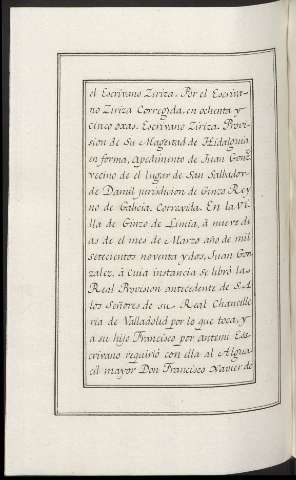 el Escrivano Ziriza. Por el Escriva-
no Ziriza Corregida, en ochenta y
cinco oxas. Escrivano Ziriza. Provi-
sion de Su Magestad de Hidalguia
en forma, apedimento de Juan Gonz
vecino de el lugar de San Salbador
de Damil jurisdicion de Ginzo Rey
no de Galicia. Corregida. En la Vi-
lla de Ginzo de Limia, à nueve di
as de el mes de Marzo año de mil
setecientos noventa y dos, Juan Gon
zalez, à cuia instancia se libró las
Real Provision antecedente de S.A.
los Señores de su Real Chancille
ria de Valladolid por lo que toca, y
a su hijo Francisco por antemi Ess
crivano requirió con ella al Algua
cil mayor Don Francisco Xavier de